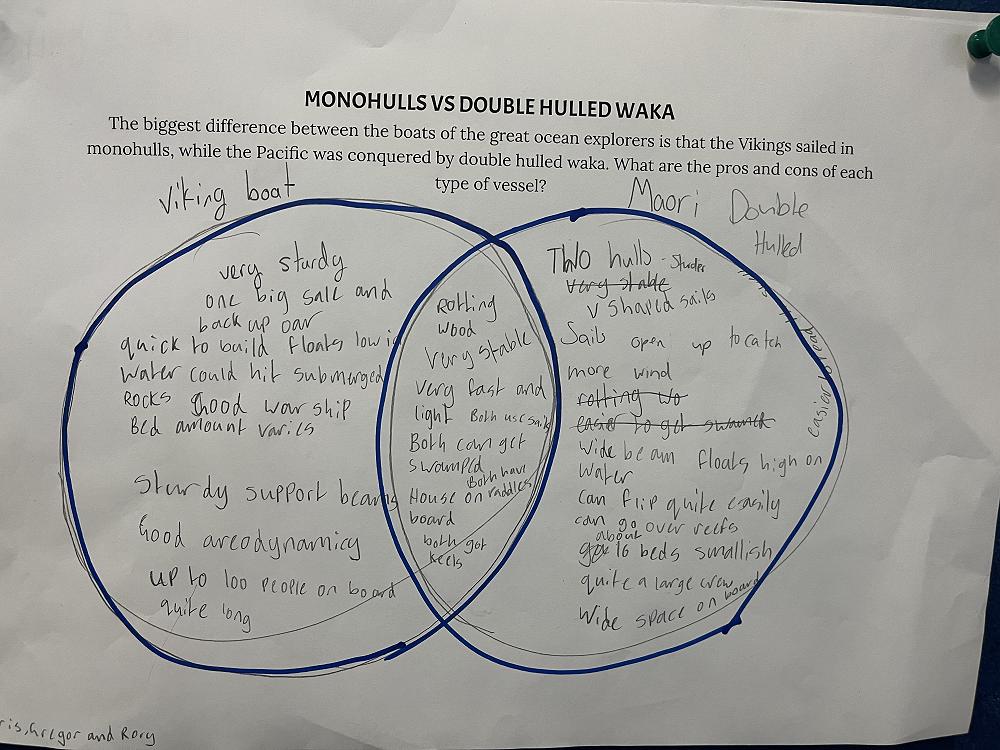 MONOHULLS VS DOUBLE HULLED WAKA
The biggest difference between the boats of the great ocean explorers is that the Vikings sailed in
monohulls, while the Pacific was conquered by double hulled waka. What are the pros and cons of each
type of vessel?
Viking boat
very sturdy
one big sale and
back up oar
quick to build floats low in
water could hit submerged
Rocks Good war ship
Bed amount varies
Sturdy support beams
Good areodynamicy
up to 100 people on board
quite long
Rotting
wood
very stable
very fast and
light Both use sails
Both can get
swamped
Both have
House on paddles
board
both got
keels
Maori Double
Hulled
Two hulls -
very stable
v shaped sails
Sails open up to catch
more wind
rotting wo
easier to get swamed
Wide beam floats high on
water
can flip quite easily
can go over reefs
about
16 beds smallish
quite a large crew
Wide space on board
easier to read
Gregor and Rory